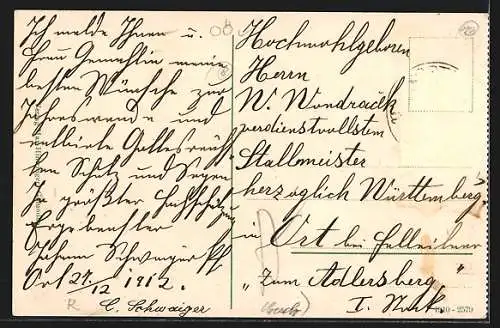 Ich melde Ihnen u.
Frau Gemahlin meine
besten Wünsche zur
Jahreswende und
Gottes reich-
sten Schutz und Segen
In größter Hochschätzung
Ergebenster
Johann Schwaiger
Ort 27/12 1912.
C. Schwaiger
Hochwohlgeboren
Herrn
W. Wondrack
verdienstvollstem
Stallmeister
herzöglich Württemberg.
in Ort bei
„Zum Adlersberg,“
I. Stock
1910-2579